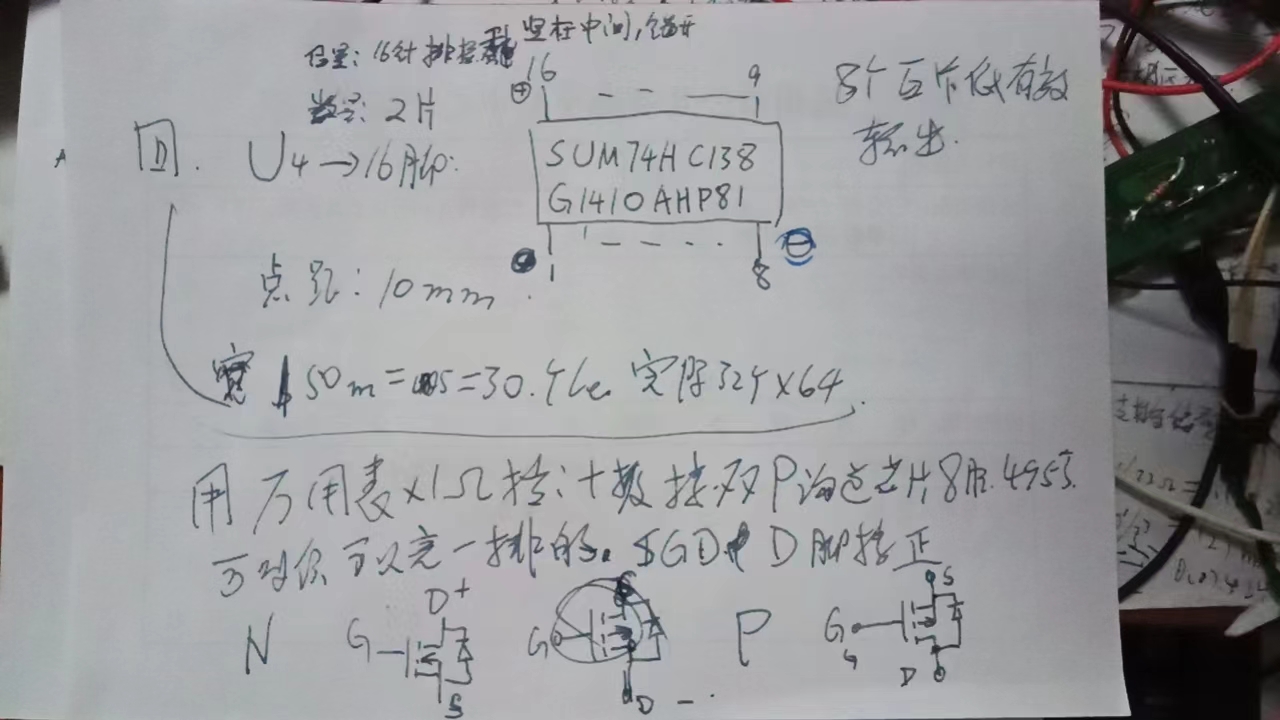 位置：16针排 竖在中间，错开
数量：2片
16 9
⊕
8个互片低有效
输出.
D. U4→16脚:
SUM74HC138
G1410AHP81
⊖
1 8
点距：10mm
宽 150m= =30.4 实际324×64
用万用表×1Ω挡：+极接双P沟道芯片8脚.4953.
亮一排的. SGD D脚接正
D+ S
N G G P G
G
S D - D